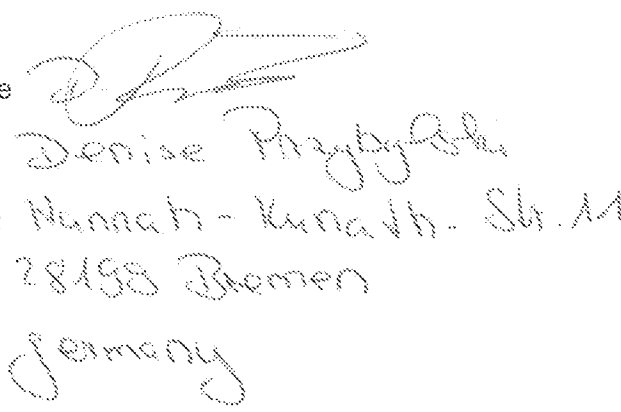 e
Denise Przybylski
Hannah-Kunath-Str. 11
28199 Bremen
Germany